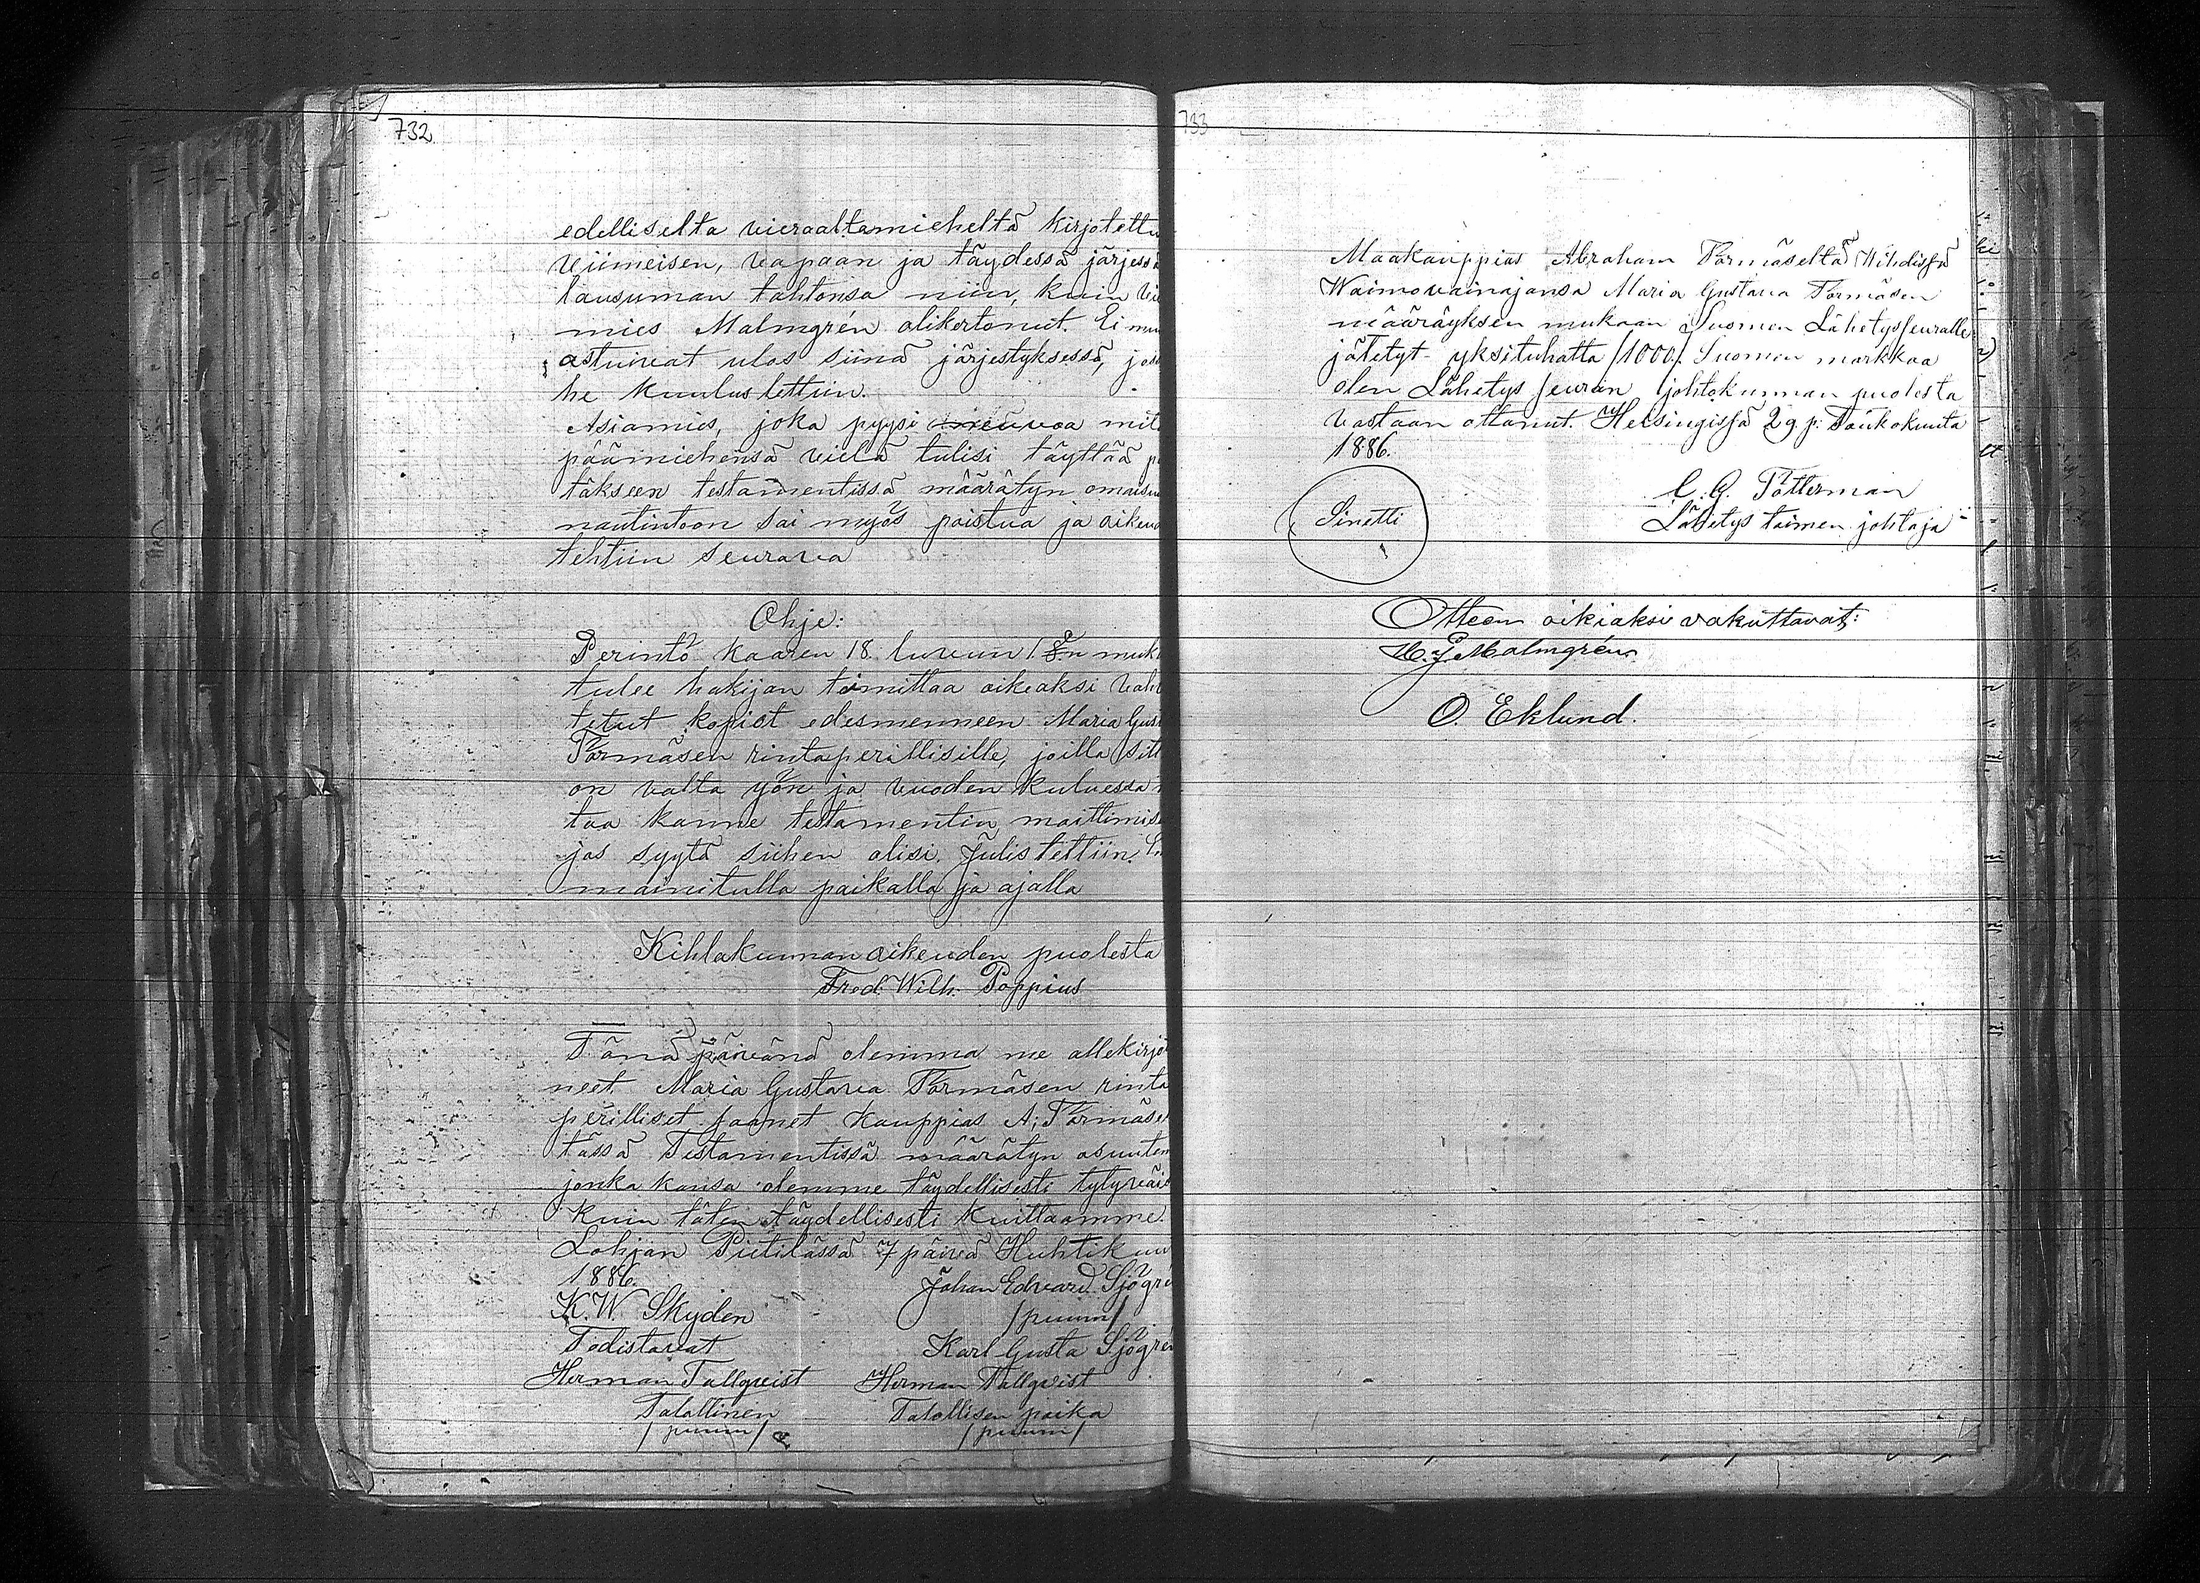 732
edelliselta vieraaltamieheltä kirjotettu
viimeisen, vapaan ja täydessä järjessä
lausuman tahtonsa niin, kuin vie
mies Malmgrén olikertonut. Ei muu
astuivat ulos siinä järjestyksessä, jos
he kuulustettiin.
Asiamies, joka pyysi neuvoa mit
päämiehensä vielä tulisi täyttää p
täkseen testamentissa määrätyn omaisu
nautintoon sai myös poistua ja oikeu
tehtiin seurava
Ohje:
Perintö kaaren 18 luvun 1 §:n muk
tulee hakijan toimittaa oikeaksi vah
tetut kopiot edesmenneen Maria Gus
Törmäsen rintaperillisille, joilla sitt
on valta yön ja vuoden kuluessa
taa kanne testamentin moittimise
jos syytä siihen olisi. Julistettiin.
mainitulla paikalla ja ajalla
Kihlakunnanoikeuden puolesta
Fred. Wilh. Poppius
Tänä päivänä olemma me allekirjo
neet Maria Gustava Törmäsen rinta
perilliset saanet kauppias A. Törmäse
tässä Testamentissä määrätyn osuuten
jonka kansa olemme täydellisesti tytyväis
kuin täten täydellisesti kuittaamme.
Lohjan Pietilässä 7 päivä Huhtikuu
1886.
Johan Edvard Sjögré
K.W. Skyden
/puum/
Todistavat
Karl Gusta Sjögre
Herman Tallqvist Herman Tallqvist
Talollinen Talollisen poika
/puum/ /puum/
733
Maakauppias Abraham Törmäseltä Wihdissä
Waimovainajansa Maria Gustava Törmäsen
määräyksen mukaan Suomen Lähetysseuralle
jätetyt yksituhatta /1000/ Suomen markkaa
olen Lähetysseuran johtokunnan puolesta
vastaan ottanut. Helsingissä 29 p: Toukokuuta
1886.
C. G. Tötterman
Sinetti
Lähetys toimen johtaja
Otteen oikiaksi vakuttavat:
H. J. Malmgrén.
O. Eklund.